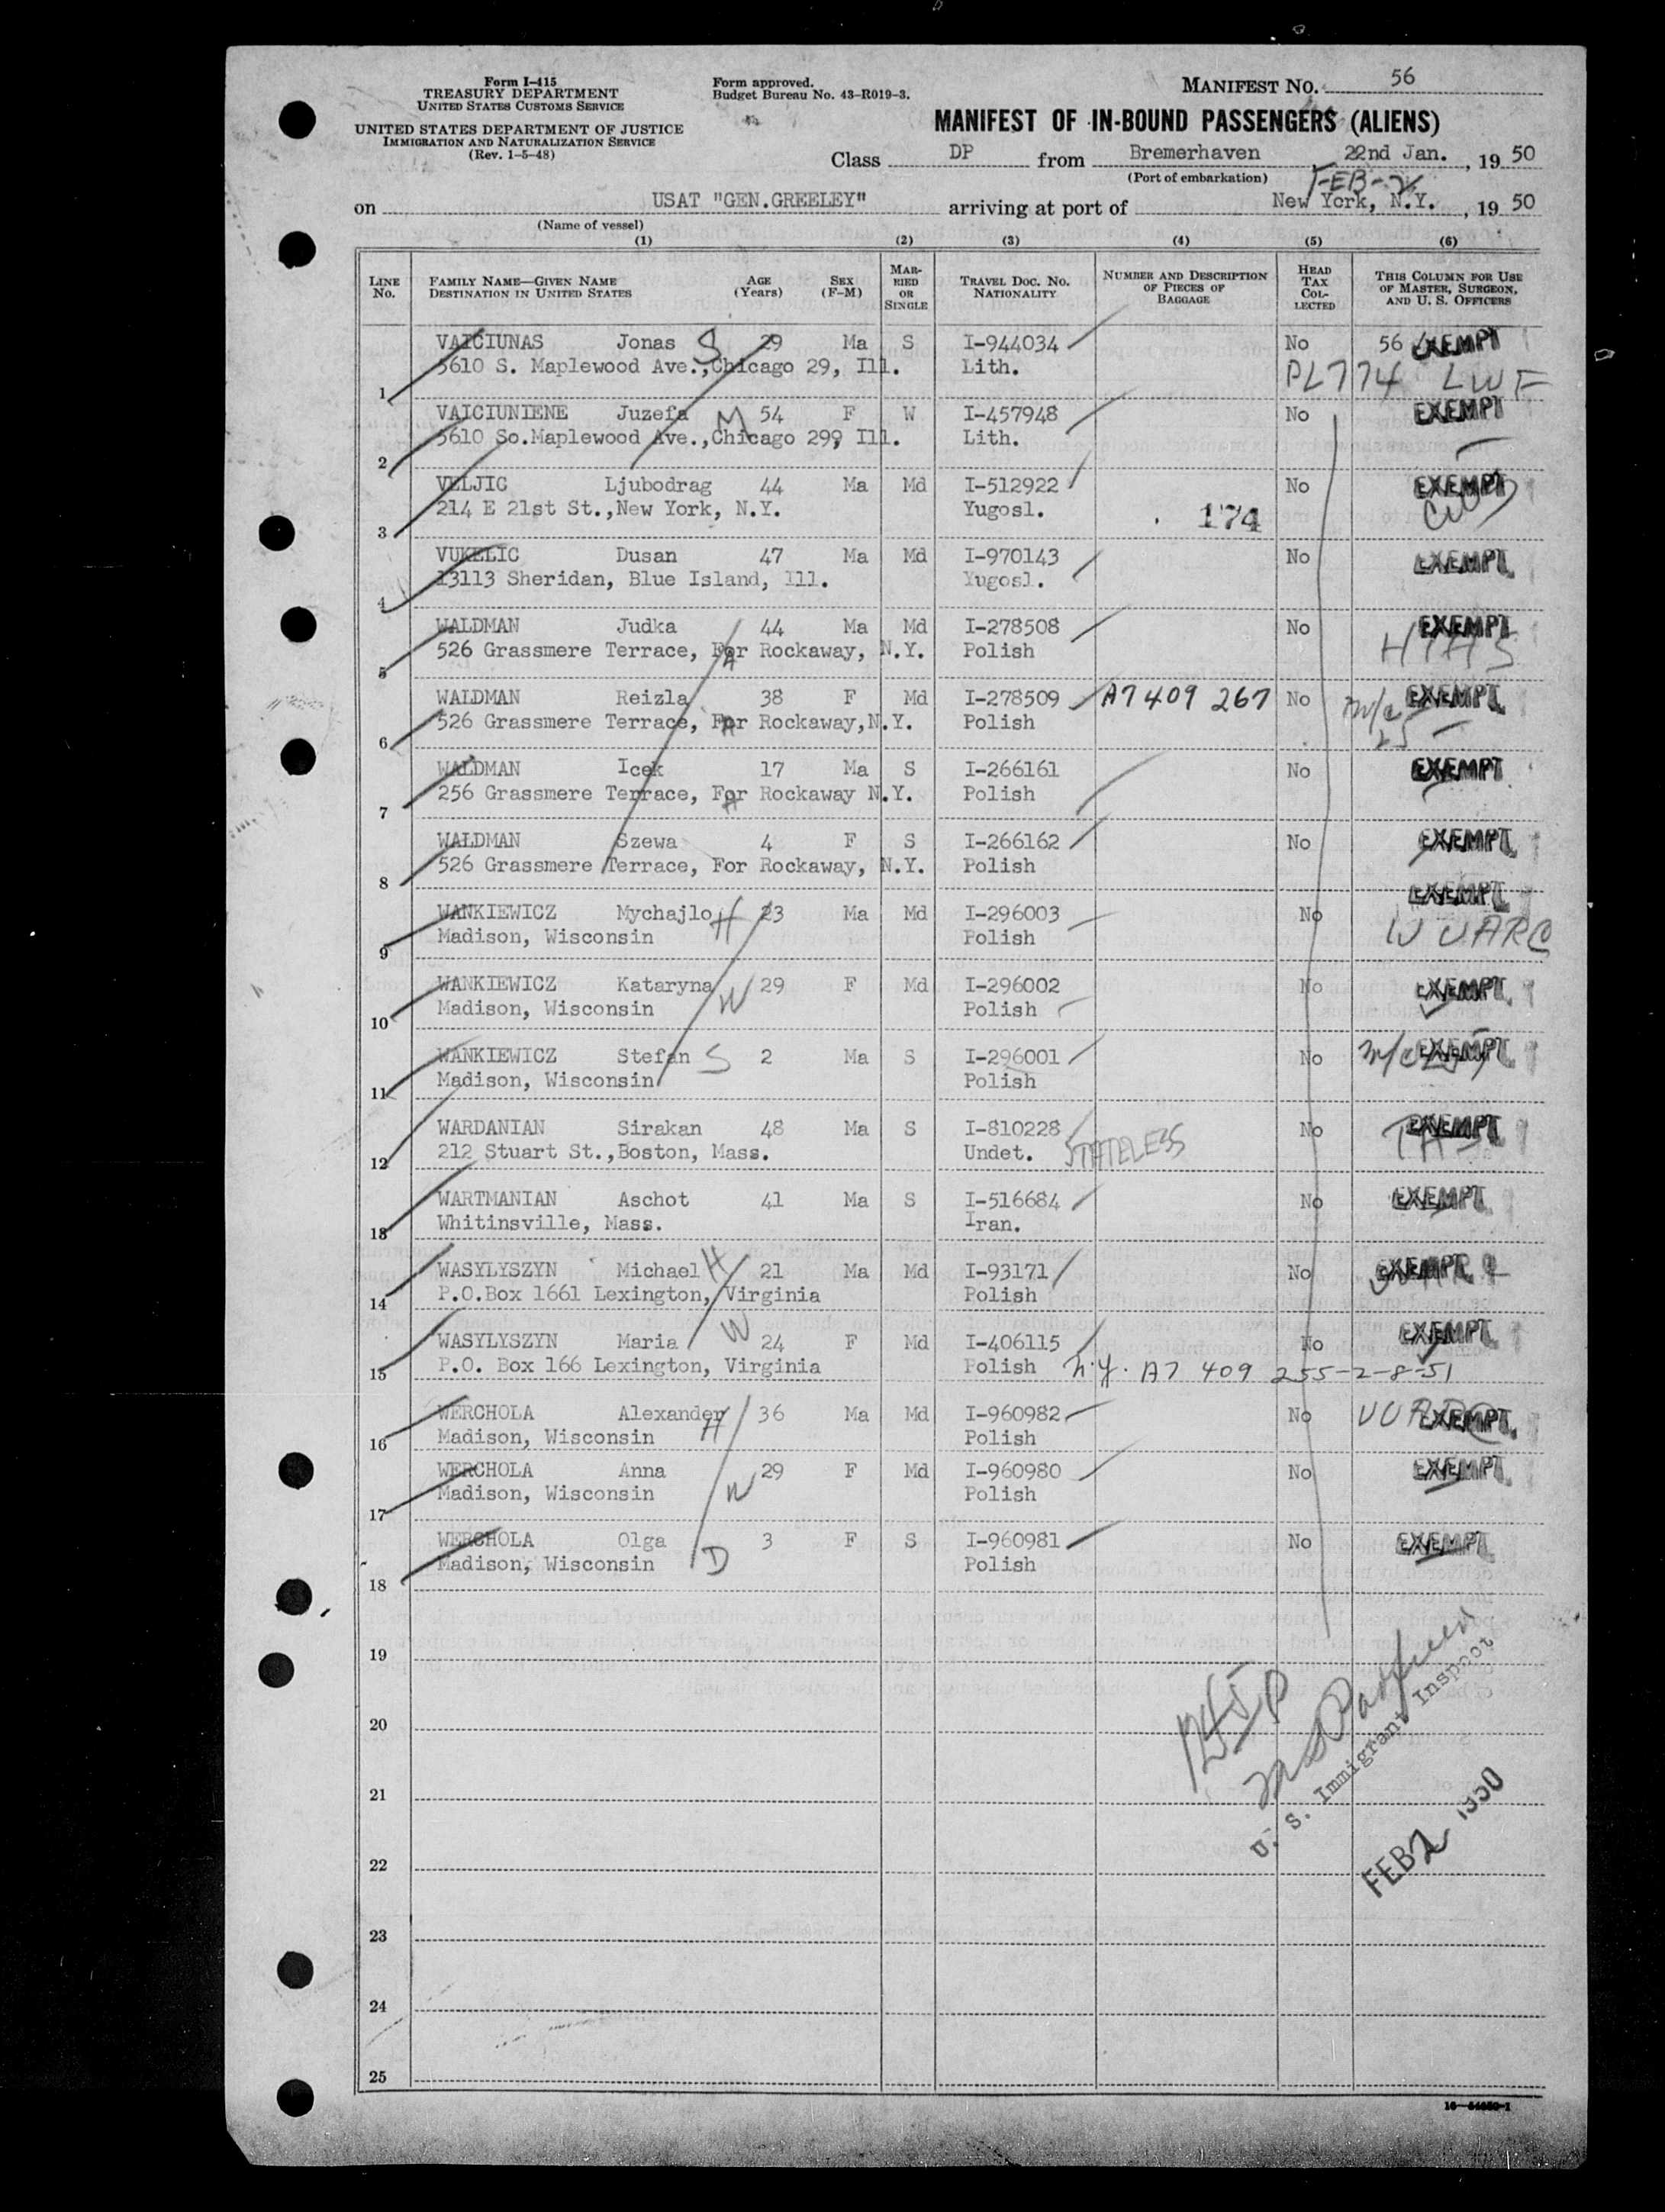 Form I-415
TREASURY DEPARTMENT
UNITED STATES CUSTOMS SERVICE
UNITED STATES DEPARTMENT OF JUSTICE
IMMIGRATION AND NATURALIZATION SERVICE
(Rev. 1-5-48)
Form approved.
Budget Bureau No. 43-R019-3.
MANIFEST NO. 56
MANIFEST OF IN-BOUND PASSENGERS (ALIENS)
Class DP from Bremerhaven, 22nd Jan., 19 50
(Port of embarkation)
FEB-2
on USAT "GEN.GREELEY" arriving at port of New York, N.Y., 19 50
(Name of vessel)
(1) (2) (3) (4) (5) (6)
LINE NO. FAMILY NAME—GIVEN NAME DESTINATION IN UNITED STATES AGE (Years) SEX (F-M) MARRIED OR SINGLE TRAVEL DOC. NO. NATIONALITY NUMBER AND DESCRIPTION OF PIECES OF BAGGAGE HEAD TAX COLLECTED THIS COLUMN FOR USE OF MASTER, SURGEON, AND U. S. OFFICERS
VAICIUNAS Jonas S 29 Ma S I-944034 No 56 EXEMPT
5610 S. Maplewood Ave.,Chicago 29, Ill. Lith. PL774 LWF
1
VAICIUNIENE Juzefa M 54 F W I-457948 No EXEMPT
5610 So.Maplewood Ave.,Chicago 299 Ill. Lith.
2
VELJIC Ljubodrag 44 Ma Md I-512922 No EXEMPT
214 E 21st St.,New York, N.Y. Yugosl. 174
3
VUKELIC Dusan 47 Ma Md I-970143 No EXEMPT
13113 Sheridan, Blue Island, Ill. Yugosl.
4
WALDMAN Judka 44 Ma Md I-278508 No EXEMPT
526 Grassmere Terrace, Far Rockaway, N.Y. Polish HIAS
5
WALDMAN Reizla 38 F Md I-278509 A7 409 267 No EXEMPT
526 Grassmere Terrace, Far Rockaway,N.Y. Polish
6
WALDMAN Icek 17 Ma S I-266161 No EXEMPT
256 Grassmere Terrace, Far Rockaway N.Y. Polish
7
WALDMAN Szewa 4 F S I-266162 No EXEMPT
526 Grassmere Terrace, For Rockaway, N.Y. Polish
8
EXEMPT
WANKIEWICZ Mychajlo H 23 Ma Md I-296003 No
Madison, Wisconsin Polish WUARC
9
WANKIEWICZ Kataryna W 29 F Md I-296002 No EXEMPT
Madison, Wisconsin Polish
10
WANKIEWICZ Stefan S 2 Ma S I-296001 No EXEMPT
Madison, Wisconsin Polish
11
WARDANIAN Sirakan 48 Ma S I-810228 No EXEMPT
212 Stuart St.,Boston, Mass. Undet. STATELESS
12
WARTMANIAN Aschot 41 Ma S I-516684 No EXEMPT
Whitinsville, Mass. Iran.
13
WASYLYSZYN Michael H 21 Ma Md I-93171 No EXEMPT
P.O.Box 1661 Lexington, Virginia Polish
14
WASYLYSZYN Maria W 24 F Md I-406115 No EXEMPT
P.O. Box 166 Lexington, Virginia Polish N.Y. A7 409 255-2-8-51
15
WERCHOLA Alexander H 36 Ma Md I-960982 No UUARC EXEMPT
Madison, Wisconsin Polish
16
WERCHOLA Anna W 29 F Md I-960980 No EXEMPT
Madison, Wisconsin Polish
17
WERCHOLA Olga D 3 F S I-960981 No EXEMPT
Madison, Wisconsin Polish
18
19
20
21
22
23
24
25
U. S. Immigrant Inspector
FEB 2 1950